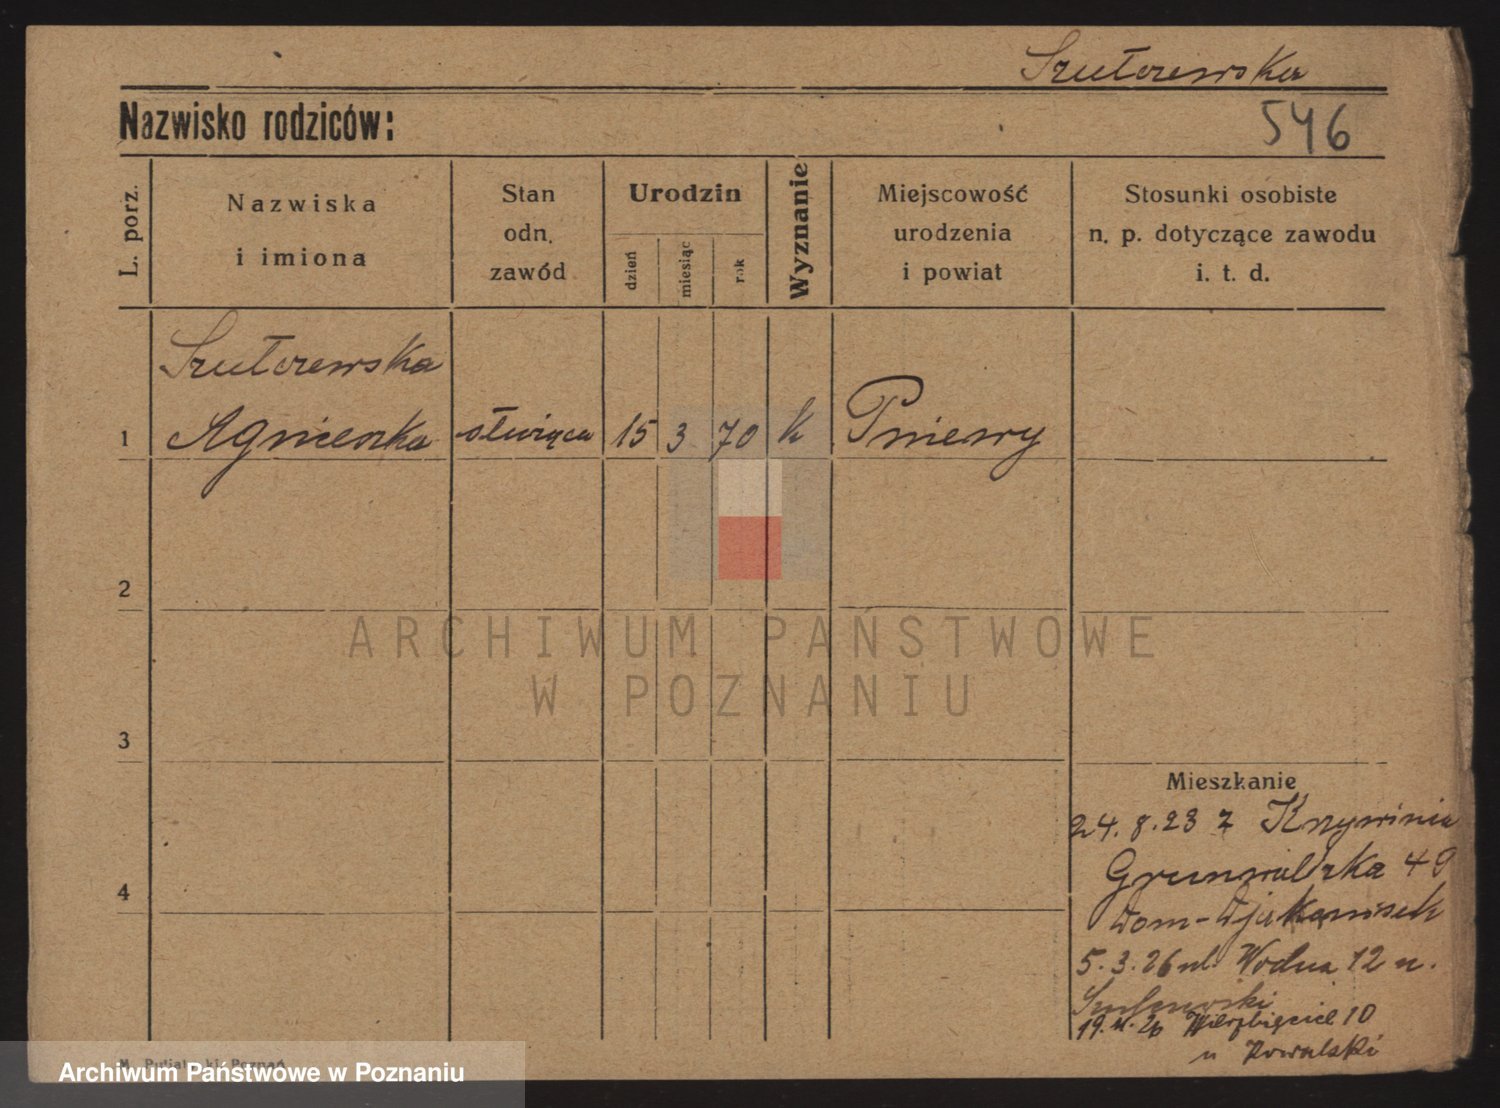 Szułczewska
Nazwisko rodziców:
546
L. porz.
Nazwiska
i imiona
Stan
odn.
zawód
Urodzin
dzień
miesiąc
rok
Wyznanie
Miejscowość
urodzenia
i powiat
Stosunki osobiste
n. p. dotyczące zawodu
i. t. d.
Szułczewska
1 Agnieszka służąca 15 3 70 k Pniewy
2
ARCHIWUM PAŃSTWOWE
W POZNANIU
3
Mieszkanie
24.8.23 z Krzywinia
Grunwaldzka 49
4
Dom-Djakonisek
5.3.26 ul. Wodna 12 u.
19. 26 Wierzbięcice 10
u Kowalski
Poznań
Archiwum Państwowe w Poznaniu